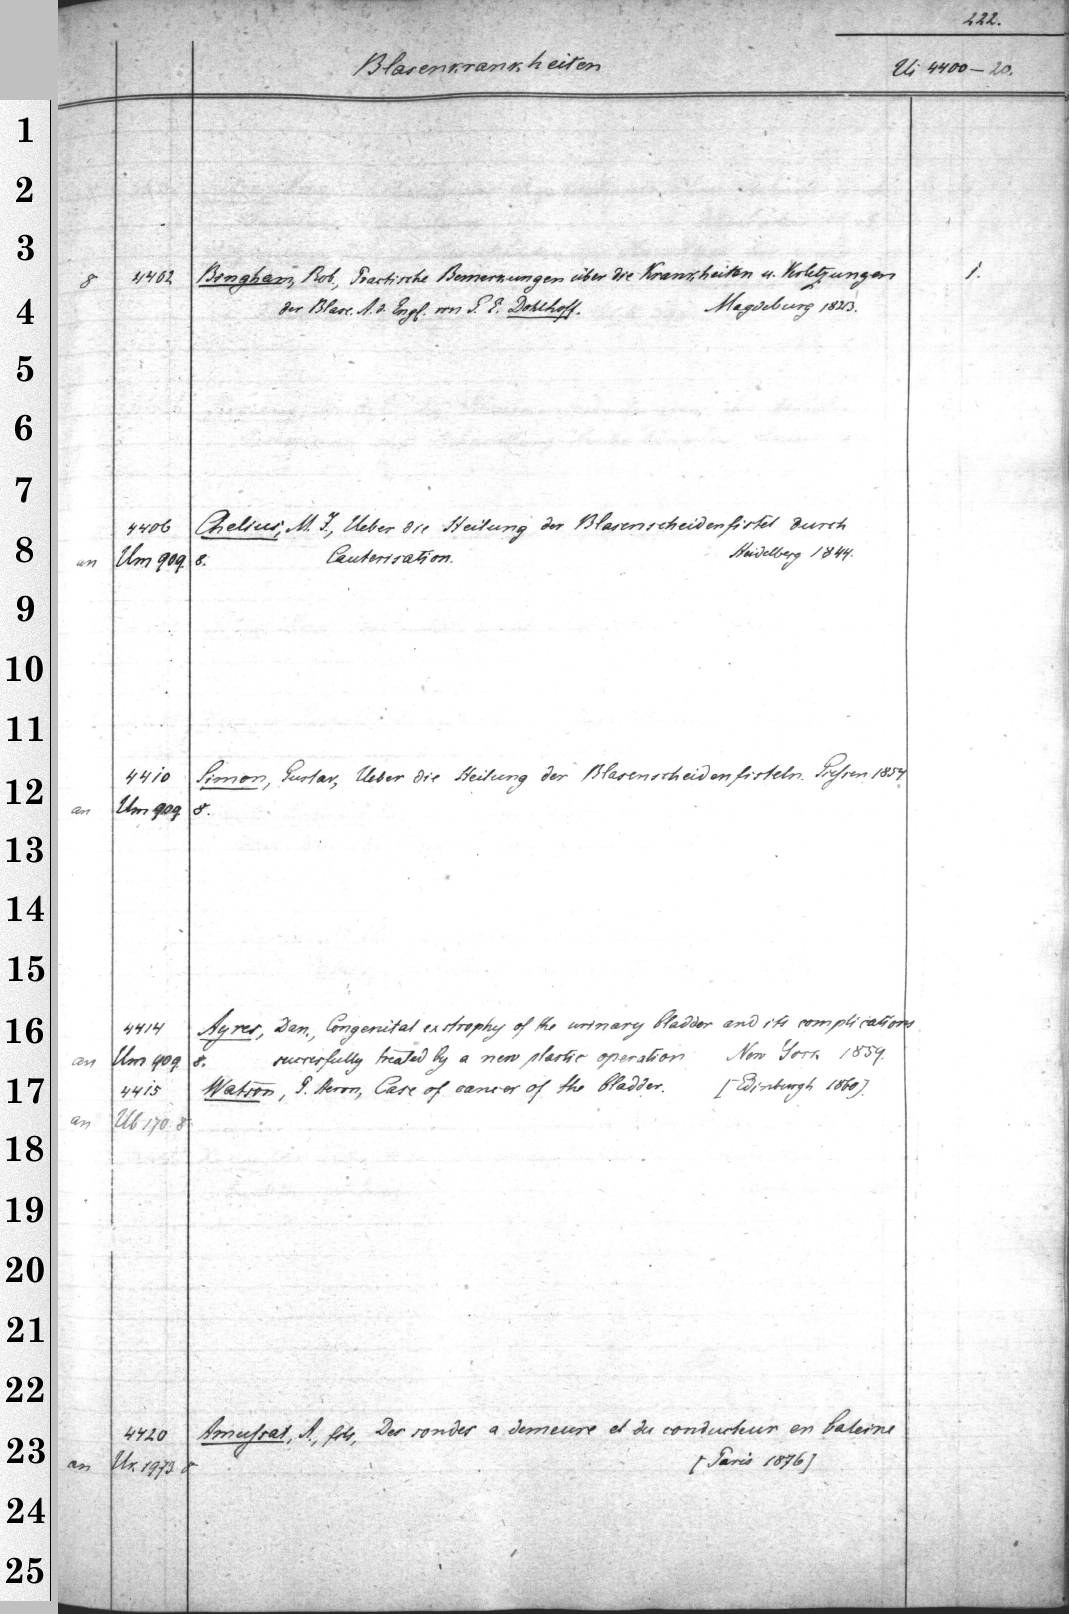 222.
Blasenkrankheiten Ui 4400-20.
1
2
3
8 4402 Bingham, Rob., Practische Bemerkungen über die Krankheiten u. Verletzungen 1.
4 der Blase. A. d. Engl. von G. E. Dohlhoff. Magdeburg 1823.
5
6
7
4406 Chelius, M. J., Ueber die Heilung der Blasenscheidenfistel durch
8 an Um 909 8. Cauterisation. Heidelberg 1844.
9
10
11
4410 Simon, Gustav, Ueber die Heilung der Blasenscheidenfisteln. Giessen 1854
12 an Um 909 8.
13
14
15
16 4414 Ayres, Dan., Congenital exstrophy of the urinary bladder and its complications
an Um 909 8. successfully treated by a new plastic operation New York 1859.
17 4415 Watson, P. Heron, Case of cancer of the bladder. [Edinburgh 1860].
an Ub 170 8
18
19
20
21
22
4420 Amussat, A., fils, Des sondes a demeure et du conducteur en baleine
23 an Ur 1973 8 [Paris 1876]
24
25